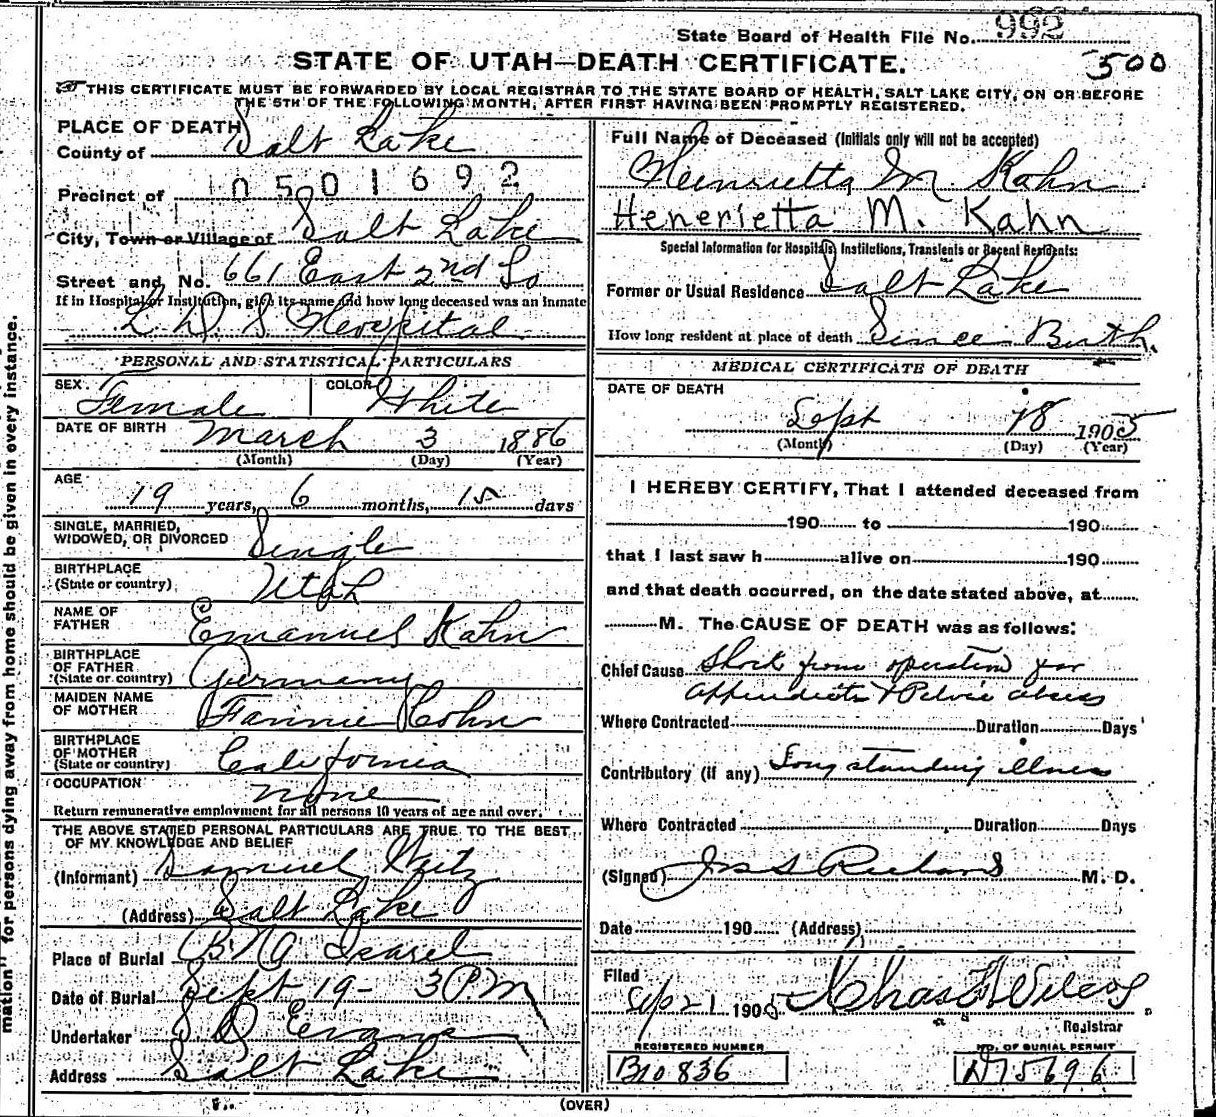 State Board of Health File No. 992
STATE OF UTAH—DEATH CERTIFICATE.
500
THIS CERTIFICATE MUST BE FORWARDED BY LOCAL REGISTRAR TO THE STATE BOARD OF HEALTH, SALT LAKE CITY, ON OR BEFORE
THE 5TH OF THE FOLLOWING MONTH, AFTER FIRST HAVING BEEN PROMPTLY REGISTERED.
mation" for persons dying away from home should be given in every instance.
PLACE OF DEATH
County of Salt Lake
Precinct of 0501692
City, Town or Village of Salt Lake
Street and No. 661 East 2nd So
If in Hospital or Institution, give its name and how long deceased was an inmate
L. D. S Hospital
PERSONAL AND STATISTICAL PARTICULARS
SEX. Female COLOR White
DATE OF BIRTH March 3 1886
(Month) (Day) (Year)
AGE
19 years, 6 months, 15 days
SINGLE, MARRIED,
WIDOWED, OR DIVORCED Single
BIRTHPLACE
(State or country) Utah
NAME OF
FATHER Emanuel Kahn
BIRTHPLACE
OF FATHER
(State or country) Germany
MAIDEN NAME
OF MOTHER Fannie Cohn
BIRTHPLACE
OF MOTHER
(State or country) California
OCCUPATION none
Return remunerative employment for all persons 10 years of age and over.
THE ABOVE STATED PERSONAL PARTICULARS ARE TRUE TO THE BEST
OF MY KNOWLEDGE AND BELIEF
(Informant) Samuel
(Address) Salt Lake
Place of Burial B. N. A. Isarel
Date of Burial Sept 19- 3 P.M
Undertaker S D Evans
Address Salt Lake
Full Name of Deceased (Initials only will not be accepted)
Henrietta M Kahn
Henerietta M. Kahn
Special Information for Hospitals, Institutions, Transients or Recent Residents:
Former or Usual Residence Salt Lake
How long resident at place of death Since Birth.
MEDICAL CERTIFICATE OF DEATH
DATE OF DEATH
Sept 18 1905
(Month) (Day) (Year)
I HEREBY CERTIFY, That I attended deceased from
190 to 190
that I last saw h alive on 190
and that death occurred, on the date stated above, at
M. The CAUSE OF DEATH was as follows:
Chief Cause Shock from operation for
appendicitis & Pelvic abcess
Where Contracted Duration Days
Contributory (if any) Long standing illness
Where Contracted Duration Days
(Signed) Jos S Richards M. D.
Date 190 (Address)
Filed
Sep 21 1905 Chas F Wilcox
Registrar
REGISTERED NUMBER
B10836
NO. OF BURIAL PERMIT
D75696
(OVER)